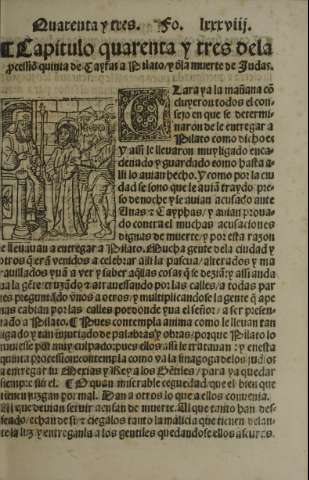 Quarenta y tres. Fo. lxxxviij.
Capitulo quarenta y tres dela
p̲cessiõ quinta de Cayfas a Pilato/ y d̲la muerte de Judas.
Clara ya la mañana cõ
cluyeron todos el con
sejo en que se determi
naron de le entregar a
Pilato como dicho es
Y assi le lleuaron muy ligado enca
denado y guardado como hasta a
lli lo auian hecho. Y como por la ciu
dad se sono que le auiã traydo pre
so de noche y le auian acusado ante
Anas &amp; Cayphas/ y auian proua
do contra el muchas acusaciones
dignas de muerte/ y por esta razon
le lleuauan a entregar a Pilato. Mucha gente dela ciudad y
otros q̃ erã venidos a celebrar alli la pascua/ alterados y ma
rauillados yuã a ver y saber aq̃llas cosas q̃ se deziã: y assi anda
ua la gẽte cruzãdo &amp; atrauessando por las calles/ a todas par
tes preguntãdo vnos a otros/ y multiplicandose la gente q̃ ape
nas cabian por las calles por donde yua el señor/ a ser presen
tado a Pilato. Pues contempla anima como le lleuan tan
ligado y tan injuriado de palabras y obras/ porque Pilato lo
por muy culpado: pues ellos assi le tratauan: y enesta
quinta procession: contempla como ya la sinagoga delos judios
a entregar su Mexias y Rey a los Gẽtiles/ para ya quedar
siempre sin el. O quan miserable ceguedad/ que el bien que
tienen juzgan por mal. Dan a otros lo que a ellos conuenia.
Al que deuian seruir acusan de muerte. Al que tanto han des
seado/ echan de si: &amp; ciegalos tanto la malicia que tienen delan
te la luz y entreganla a los gentiles quedandose ellos ascuras.